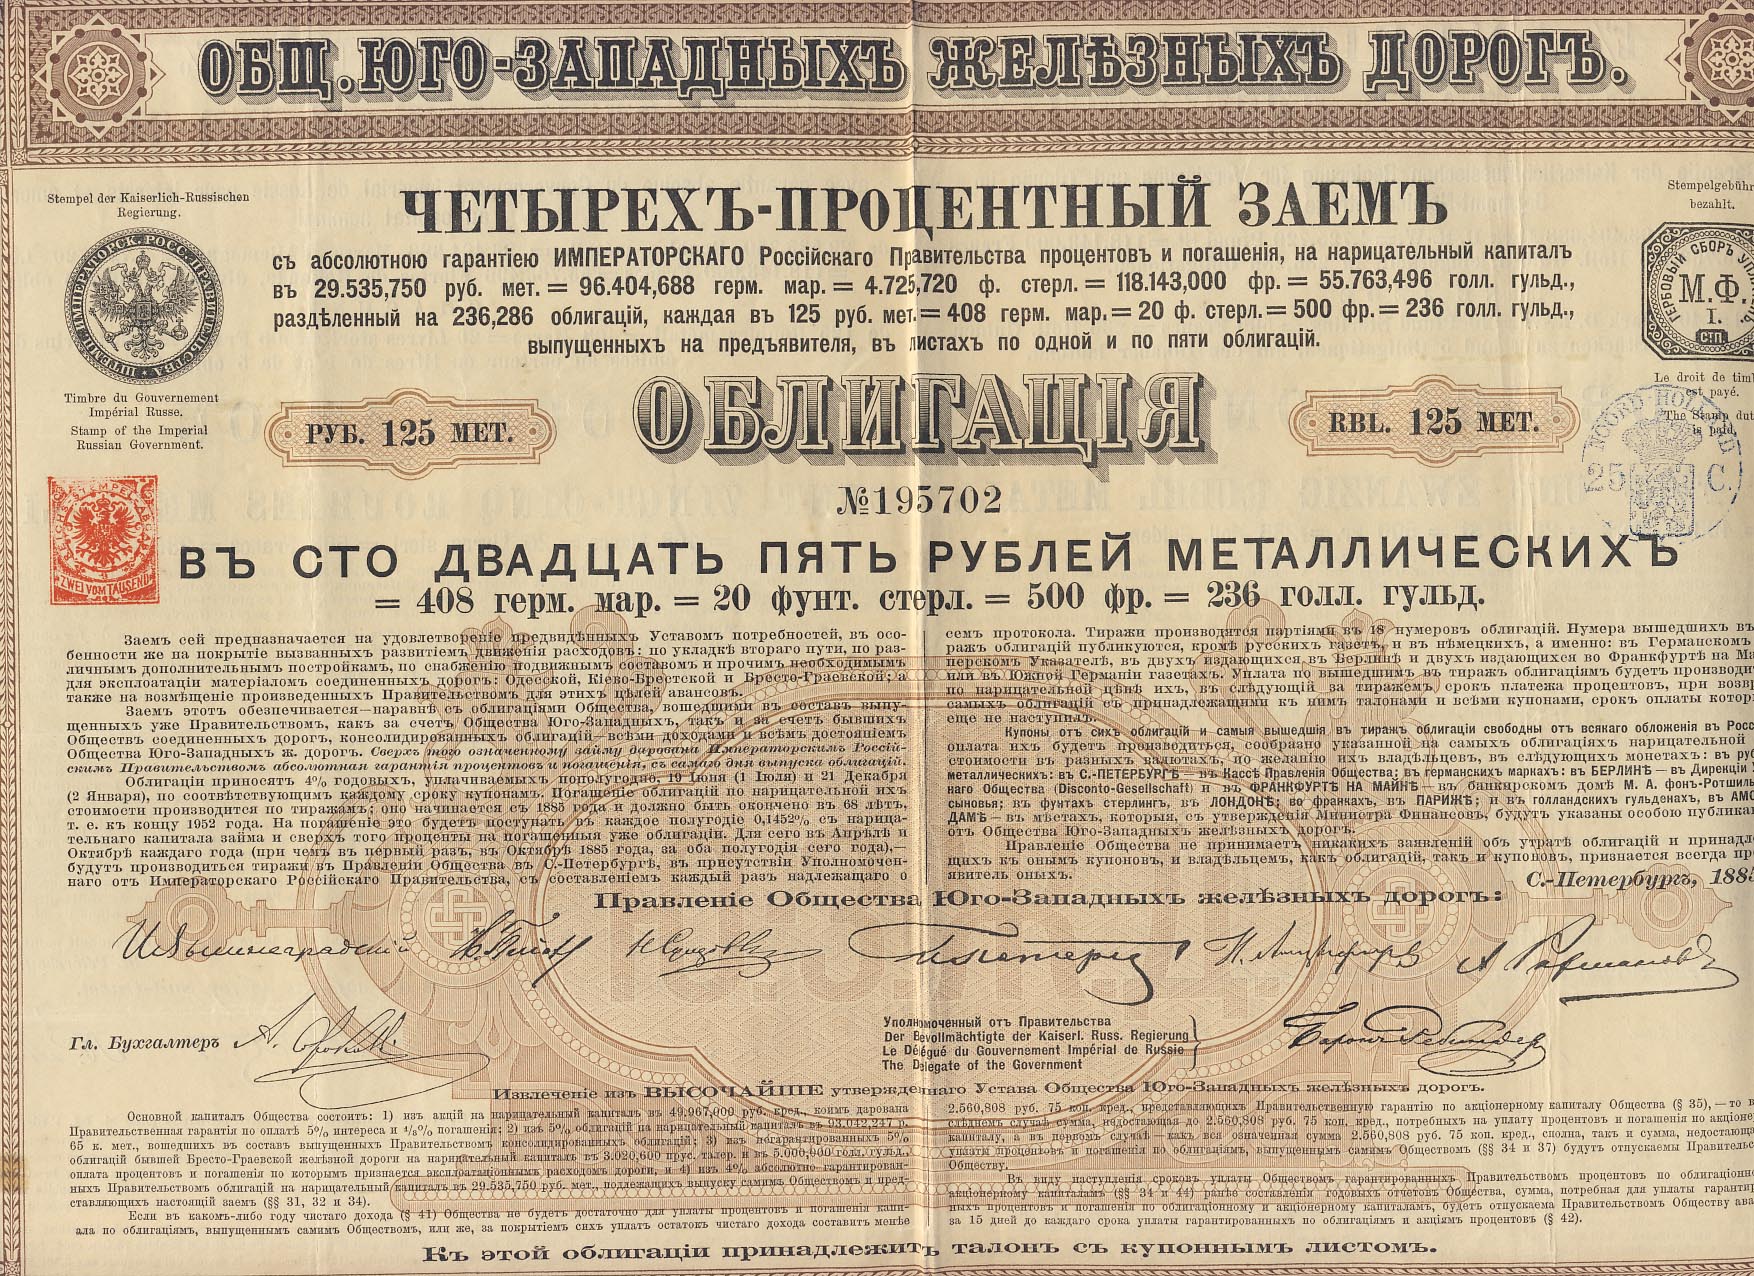 ОБЩ. ЮГО-ЗАПАДНЫХЪ ЖЕЛѢЗНЫХЪ ДОРОГЪ.
Stempel der Kaiserlich-Russischen
Regierung.
ЧЕТЫРЕХЪ-ПРОЦЕНТНЫЙ ЗАЕМЪ
Stempelgebühr
bezahlt.
съ абсолютною гарантіею ИМПЕРАТОРСКАГО Россійскаго Правительства процентовъ и погашенія, на нарицательный капиталъ
въ 29.535,750 руб. мет. = 96.404,688 герм. мар. = 4.725,720 ф. стерл. = 118.143,000 фр. = 55.763,496 голл. гульд.,
раздѣленный на 236,286 облигацій, каждая въ 125 руб. мет. = 408 герм. мар. = 20 ф. стерл. = 500 фр. = 236 голл. гульд.,
выпущенныхъ на предъявителя, въ листахъ по одной и по пяти облигацій.
ГЕРБОВЫЙ СБОРЪ
М.Ф.
I.
СП
Timbre du Gouvernement
Impérial Russe.
Stamp of the Imperial
Russian Government.
Le droit de
est payé.
The Stamp
is paid.
РУБ. 125 МЕТ.
ОБЛИГАЦІЯ
RBL. 125 MET.
NOORD-HOLLAND
25 C.
№195702
REICHS-STEMPEL-ABGABE
ZWEI VOM TAUSEND
ВЪ СТО ДВАДЦАТЬ ПЯТЬ РУБЛЕЙ МЕТАЛЛИЧЕСКИХЪ
= 408 герм. мар. = 20 фунт. стерл. = 500 фр. = 236 голл. гульд.
Заемъ сей предназначается на удовлетвореніе предвидѣнныхъ Уставомъ потребностей, въ осо-
бенности же на покрытіе вызванныхъ развитіемъ движенія расходовъ: по укладкѣ втораго пути, по раз-
личнымъ дополнительнымъ постройкамъ, по снабженію подвижнымъ составомъ и прочимъ необходимымъ
для эксплоатаціи матеріаломъ соединенныхъ дорогъ: Одесской, Кіево-Брестской и Бресто-Граевской; а
также на возмѣщеніе произведенныхъ Правительствомъ для этихъ цѣлей авансовъ.
Заемъ этотъ обезпечивается—наравнѣ съ облигаціями Общества, вошедшими въ составъ выпу-
щенныхъ уже Правительствомъ, какъ за счетъ Общества Юго-Западныхъ, такъ и за счетъ бывшихъ
Обществъ соединенныхъ дорогъ, консолидированныхъ облигацій—всѣми доходами и всѣмъ достояніемъ
Общества Юго-Западныхъ ж. дорогъ. Сверхъ того означенному займу дарована Императорскимъ Россій-
скимъ Правительствомъ абсолютная гарантія процентовъ и погашенія, съ самаго дня выпуска облигацій.
Облигаціи приносятъ 4% годовыхъ, уплачиваемыхъ пополугодно, 19 Іюня (1 Іюля) и 21 Декабря
(2 Января), по соотвѣтствующимъ каждому сроку купонамъ. Погашеніе облигацій по нарицательной ихъ
стоимости производится по тиражамъ; оно начинается съ 1885 года и должно быть окончено въ 68 лѣтъ,
т. е. къ концу 1952 года. На погашеніе это будетъ поступать въ каждое полугодіе 0,1452% съ нарица-
тельнаго капитала займа и сверхъ того проценты на погашенныя уже облигаціи. Для сего въ Апрѣлѣ и
Октябрѣ каждаго года (при чемъ въ первый разъ, въ Октябрѣ 1885 года, за оба полугодія сего года),—
будутъ производиться тиражи въ Правленіи Общества въ С.-Петербургѣ, въ присутствіи Уполномочен-
наго отъ Императорскаго Россійскаго Правительства, съ составленіемъ каждый разъ надлежащаго о
семъ протокола. Тиражи производятся партіями въ 18 нумеровъ облигацій. Нумера вышедшихъ въ
ражъ облигацій публикуются, кромѣ русскихъ газетъ, и въ нѣмецкихъ, а именно: въ Германскомъ
перскомъ Указателѣ, въ двухъ издающихся въ Берлинѣ и двухъ издающихся во Франкфуртѣ на
или въ Южной Германіи газетахъ. Уплата по вышедшимъ въ тиражъ облигаціямъ будетъ
по нарицательной цѣнѣ ихъ, въ слѣдующій за тиражемъ срокъ платежа процентовъ, при
самыхъ облигацій съ принадлежащими къ нимъ талонами и всѣми купонами, срокъ оплаты
еще не наступилъ.
Купоны отъ сихъ облигацій и самыя вышедшія въ тиражъ облигаціи свободны отъ всякаго обложенія въ
оплата ихъ будетъ производиться, сообразно указанной на самыхъ облигаціяхъ нарицательной
стоимости въ разныхъ валютахъ, по желанію ихъ владѣльцевъ, въ слѣдующихъ монетахъ: въ
металлическихъ: въ С.-ПЕТЕРБУРГѢ — въ Кассѣ Правленія Общества; въ германскихъ маркахъ: въ БЕРЛИНѢ — въ Дирекціи
наго Общества (Disconto-Gesellschaft) и въ ФРАНКФУРТѢ НА МАЙНѢ — въ банкирскомъ домѣ М. А. фонъ-
сыновья; въ фунтахъ стерлингъ, въ ЛОНДОНѢ; во франкахъ, въ ПАРИЖѢ; и въ голландскихъ гульденахъ, въ
ДАМѢ — въ мѣстахъ, которыя, съ утвержденія Министра Финансовъ, будутъ указаны особою
отъ Общества Юго-Западныхъ желѣзныхъ дорогъ.
Правленіе Общества не принимаетъ никакихъ заявленій объ утратѣ облигацій и
щихъ къ онымъ купоновъ, и владѣльцемъ, какъ облигацій, такъ и купоновъ, признается всегда
явитель оныхъ.
С.-Петербургъ, 1885
Правленіе Общества Юго-Западныхъ желѣзныхъ дорогъ:
Гл. Бухгалтеръ
Уполномоченный отъ Правительства
Der Bevollmächtigte der Kaiserl. Russ. Regierung
Le Délégué du Gouvernement Impérial de Russie
The Delegate of the Government
Извлеченіе изъ ВЫСОЧАЙШЕ утвержденнаго Устава Общества Юго-Западныхъ желѣзныхъ дорогъ.
Основной капиталъ Общества состоитъ: 1) изъ акцій на нарицательный капиталъ въ 49.967,000 руб. кред., коимъ дарована
Правительственная гарантія по оплатѣ 5% интереса и погашенія; 2) изъ 5% облигацій на нарицательный капиталъ въ 93.042,247 р.
65 к. мет., вошедшихъ въ составъ выпущенныхъ Правительствомъ консолидированныхъ облигацій; 3) изъ негарантированныхъ 5%
облигацій бывшей Бресто-Граевской желѣзной дороги на нарицательный капиталъ въ 3.020,600 прус. талер. и въ 5.000,000 голл. гульд.,
оплата процентовъ и погашенія по которымъ признается эксплоатаціоннымъ расходомъ дороги, и 4) изъ 4% абсолютно гарантирован-
ныхъ Правительствомъ облигацій на нарицательный капиталъ въ 29.535,750 руб. мет., подлежащихъ выпуску самимъ Обществомъ и пред-
ставляющихъ настоящій заемъ (§§ 31, 32 и 34).
Если въ какомъ-либо году чистаго дохода (§ 41) Общества не будетъ достаточно для уплаты процентовъ и погашенія капи-
ала по облигаціямъ, выпущеннымъ самимъ Обществомъ, или же, за покрытіемъ сихъ уплатъ остатокъ чистаго дохода составитъ менѣе
2.560,808 руб. 75 коп. кред., представляющихъ Правительственную гарантію по акціонерному капиталу Общества (§ 35),—то
слѣднемъ случаѣ сумма, недостающая до 2.560,808 руб. 75 коп. кред., потребныхъ на уплату процентовъ и погашенія по
капиталу, а въ первомъ случаѣ—какъ вся означенная сумма 2.560,808 руб. 75 коп. кред., сполна, такъ и сумма,
уплаты процентовъ и погашенія по облигаціямъ, выпущеннымъ самимъ Обществомъ (§§ 34 и 37) будутъ отпускаемы
Обществу.
Въ виду наступленія сроковъ уплаты Обществомъ гарантированныхъ Правительствомъ процентовъ по
акціонерному капиталамъ (§§ 34 и 44) ранѣе составленія годовыхъ отчетовъ Общества, сумма, потребная для уплаты
ныхъ процентовъ и погашенія по облигаціонному и акціонерному капиталамъ, будетъ отпускаема Правительствомъ Обществу
за 15 дней до каждаго срока уплаты гарантированныхъ по облигаціямъ и акціямъ процентовъ (§ 42).
Къ этой облигаціи принадлежитъ талонъ съ купоннымъ листомъ.